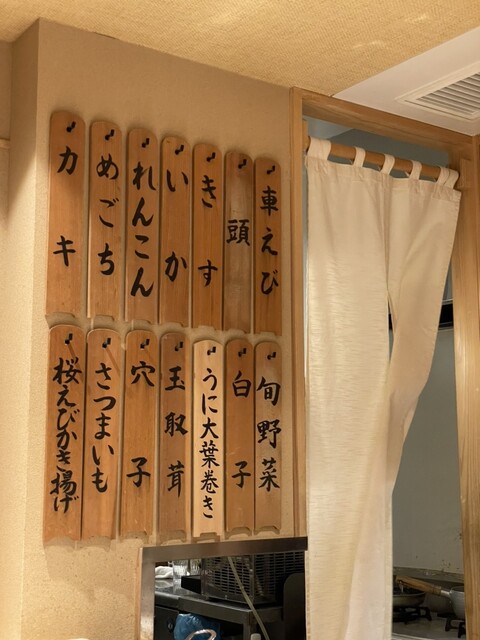 車えび
頭
きす
いか
れんこん
めごち
カキ
旬野菜
白子
うに大葉巻き
玉取茸
穴子
さつまいも
桜えびかき揚げ